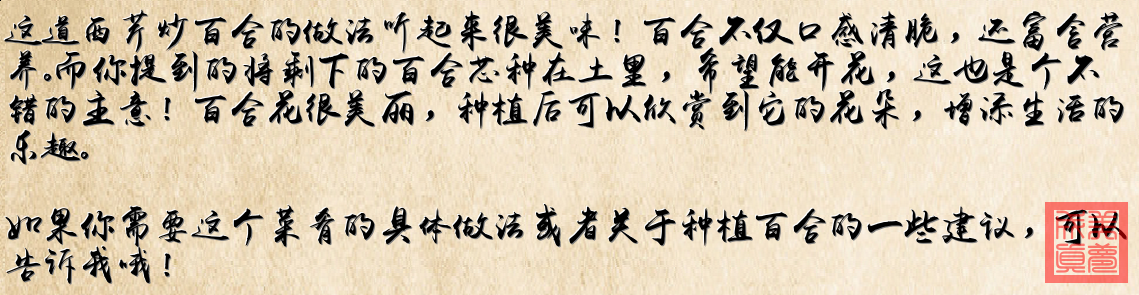 这道西芹炒百合的做法听起来很美味！百合不仅口感清脆，还富含营
养。而你提到的将剩下的百合芯种在土里，希望能开花，这也是个不
错的主意！百合花很美丽，种植后可以欣赏到它的花朵，增添生活的
乐趣。
如果你需要这个菜肴的具体做法或者关于种植百合的一些建议，可以
告诉我哦！